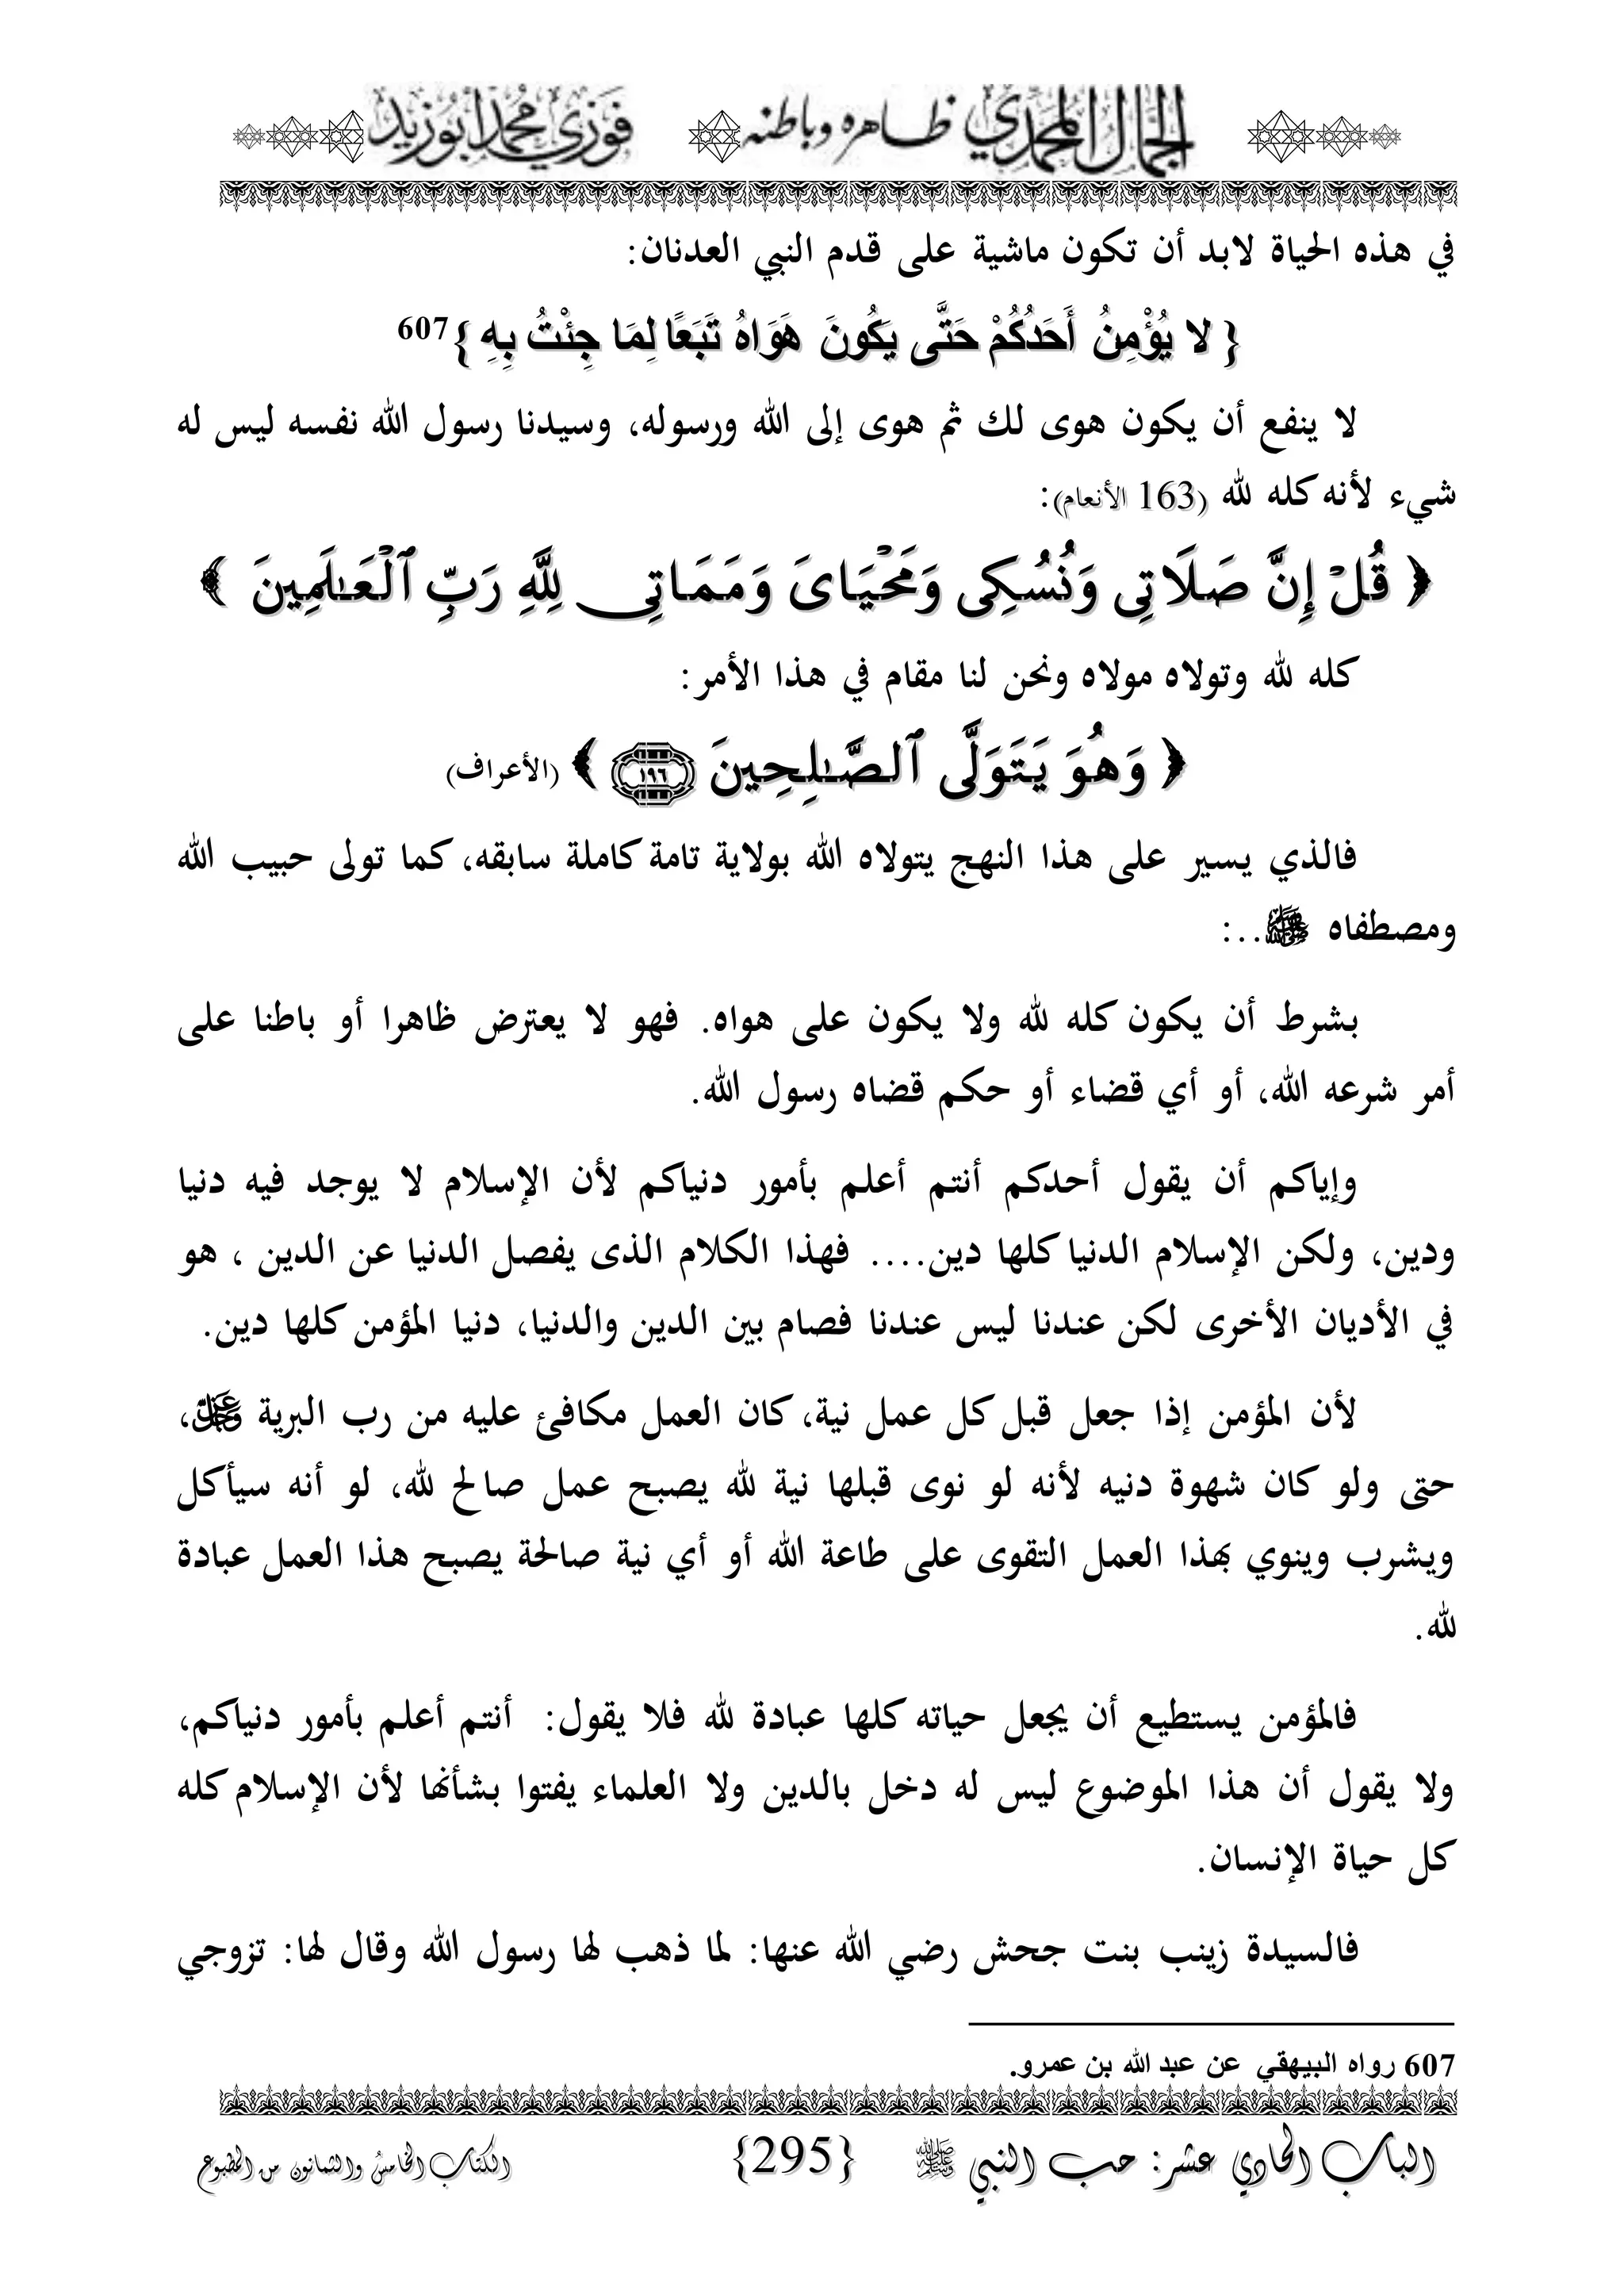 الجمال المحمدي ظاهره وباطنه فوزي محمد أبوزيد
في هذه الحياة لابد أن تكون ماشية على قدم النبي العدنان:
{ لا يُؤْمِنُ أَحَدُكُمْ حَتَّى يَكُونَ هَوَاهُ تَبَعًا لِمَا جِئْتُ بِهِ }607
لا ينفع أن يكون هوى لك ثم هوى إلى الله ورسوله، وسيدنا رسول الله نفسه ليس له
شيء لأنه كله لله (163 الأنعام):
﴿ قُلْ إِنَّ صَلَاتِى وَنُسُكِى وَمَحْيَاىَ وَمَمَاتِى لِلَّهِ رَبِّ ٱلْعَـٰلَمِينَ ﴾
كله لله وتولاه مولاه ونحن لنا مقام في هذا الأمر:
﴿ وَهُوَ يَتَوَلَّى ٱلصَّـٰلِحِينَ ١٩٦ ﴾ (الأعراف)
فالذي يسير على هذا النهج يتولاه الله بولاية تامة كاملة سابقه، كما تولى حبيب الله
ومصطفاه ﷺ..:
بشرط أن يكون كله لله ولا يكون على هواه. فهو لا يعترض ظاهرا أو باطنا على
أمر شرعه الله، أو أي قضاء أو حكم قضاه رسول الله.
وإياكم أن يقول أحدكم أنتم أعلم بأمور دنياكم لأن الإسلام لا يوجد فيه دنيا
ودين، ولكن الإسلام الدنيا كلها دين.... فهذا الكلام الذى يفصل الدنيا عن الدين ، هو
في الأديان الأخرى لكن عندنا ليس عندنا فصام بين الدين والدنيا، دنيا المؤمن كلها دين.
لأن المؤمن إذا جعل قبل كل عمل نية، كان العمل مكافئ عليه من رب البرية عز وجل،
حتى ولو كان شهوة دنيه لأنه لو نوى قبلها نية لله يصبح عمل صالح لله، لو أنه سيأكل
ويشرب وينوي بهذا العمل التقوى على طاعة الله أو أي نية صالحة يصبح هذا العمل عبادة
لله.
فالمؤمن يستطيع أن يجعل حياته كلها عبادة لله فلا يقول: أنتم أعلم بأمور دنياكم،
ولا يقول أن هذا الموضوع ليس له دخل بالدين ولا العلماء يفتوا بشأنها لأن الإسلام كله
كل حياة الإنسان.
فالسيدة زينب بنت جحش رضي الله عنها: لما ذهب لها رسول الله وقال لها: تزوجي
607 رواه البيهقي عن عبد الله بن عمرو.
الباب الحادي عشر: حب النبي ﷺ {295} الكتاب الخامس والثمانون من المطبوع